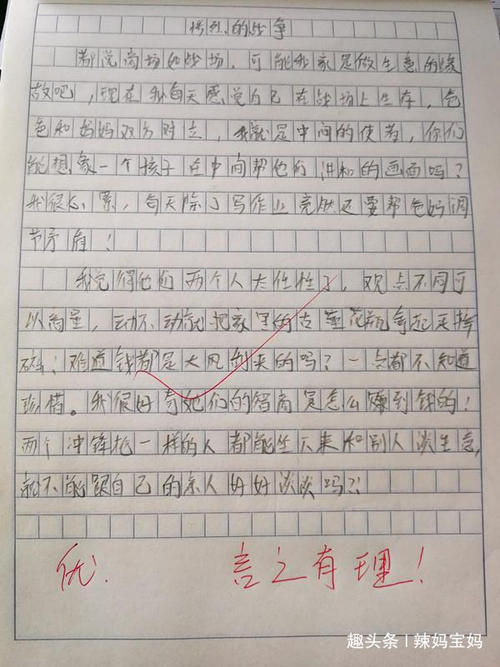 惨烈的战争
都说商场如战场，可能我家是做生意的缘
故吧，现在我每天感觉自己在战场上生存，爸
爸和妈妈双方对立，我就是中间的使者，你们
能想象一个孩子在中间帮他们讲和的画面吗？
我很心累，每天除了写作业竟然还要帮爸妈调
节矛盾！
我觉得他们两个人太任性了，观点不同可
以商量，动不动就把家里的古董花瓶拿起来摔
碎！难道钱都是大风刮来的吗？一点都不知道
珍惜。我很好奇她们的智商是怎么赚到钱的！
两个冲锋枪一样的人都能坐下来和别人谈生意，
就不能跟自己的亲人好好谈谈吗？！
优.
言之有理！
趣头条 | 辣妈宝妈